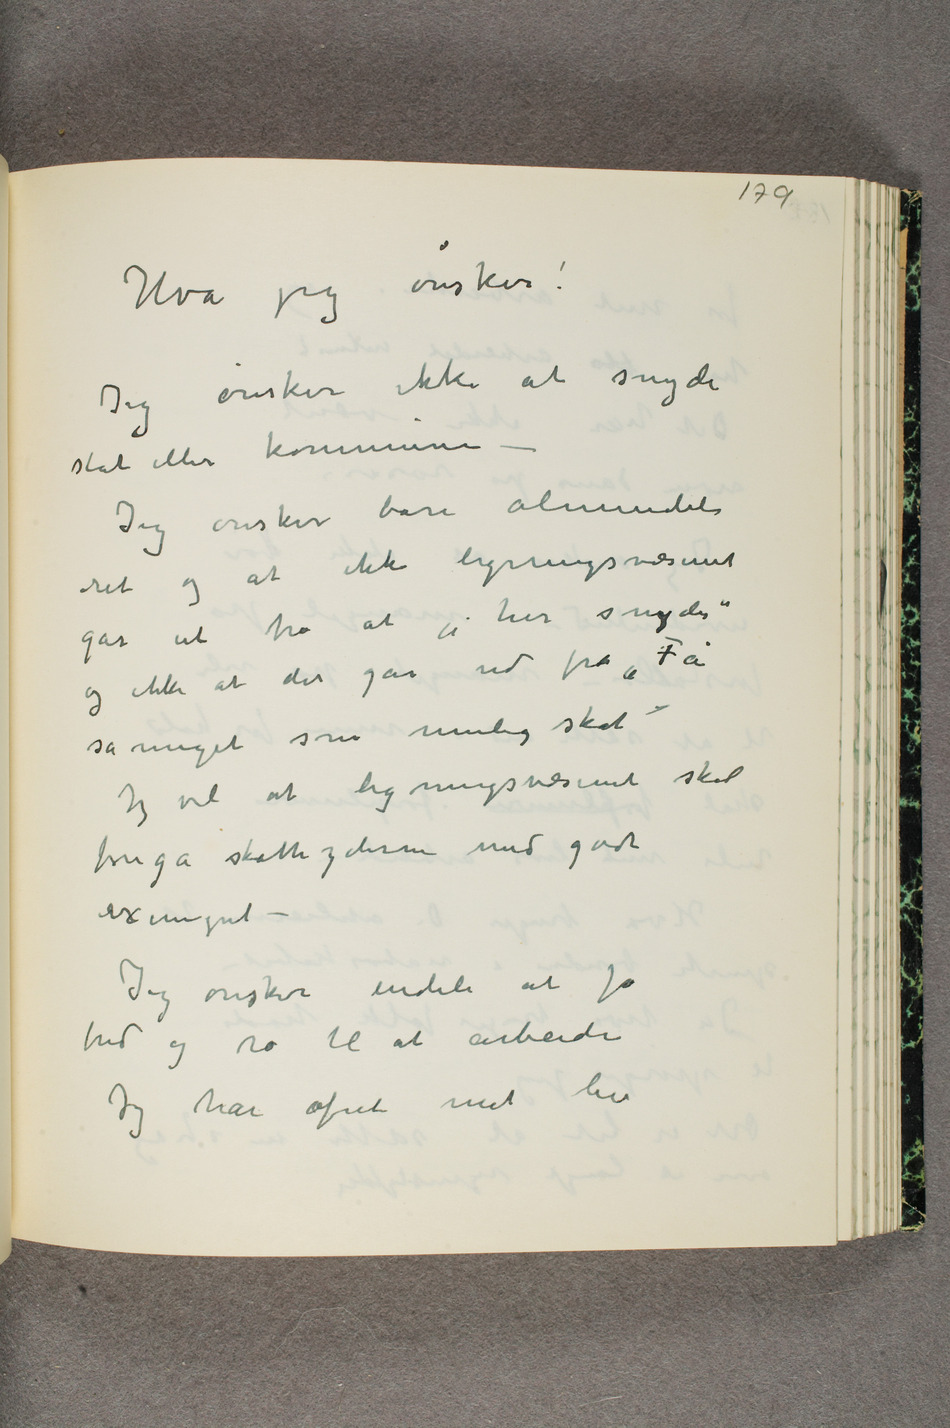 179
Hva jeg ønsker!
Jeg ønsker ikke at snyde
stat eller kommune –
Jeg ønsker bare almindeli
ret og at ikke ligningsvæsenet
går ut fra at „j her snyder“
og ikke at det gar ud fra „Få
sa meget som mulig skat“
Jeg vil at ligningsvæsenet skal
foregå skatteyderne med godt
exempel –
Jeg ønsker endeli at få
fred og ro til at arbeide
Jeg har ofret mit liv